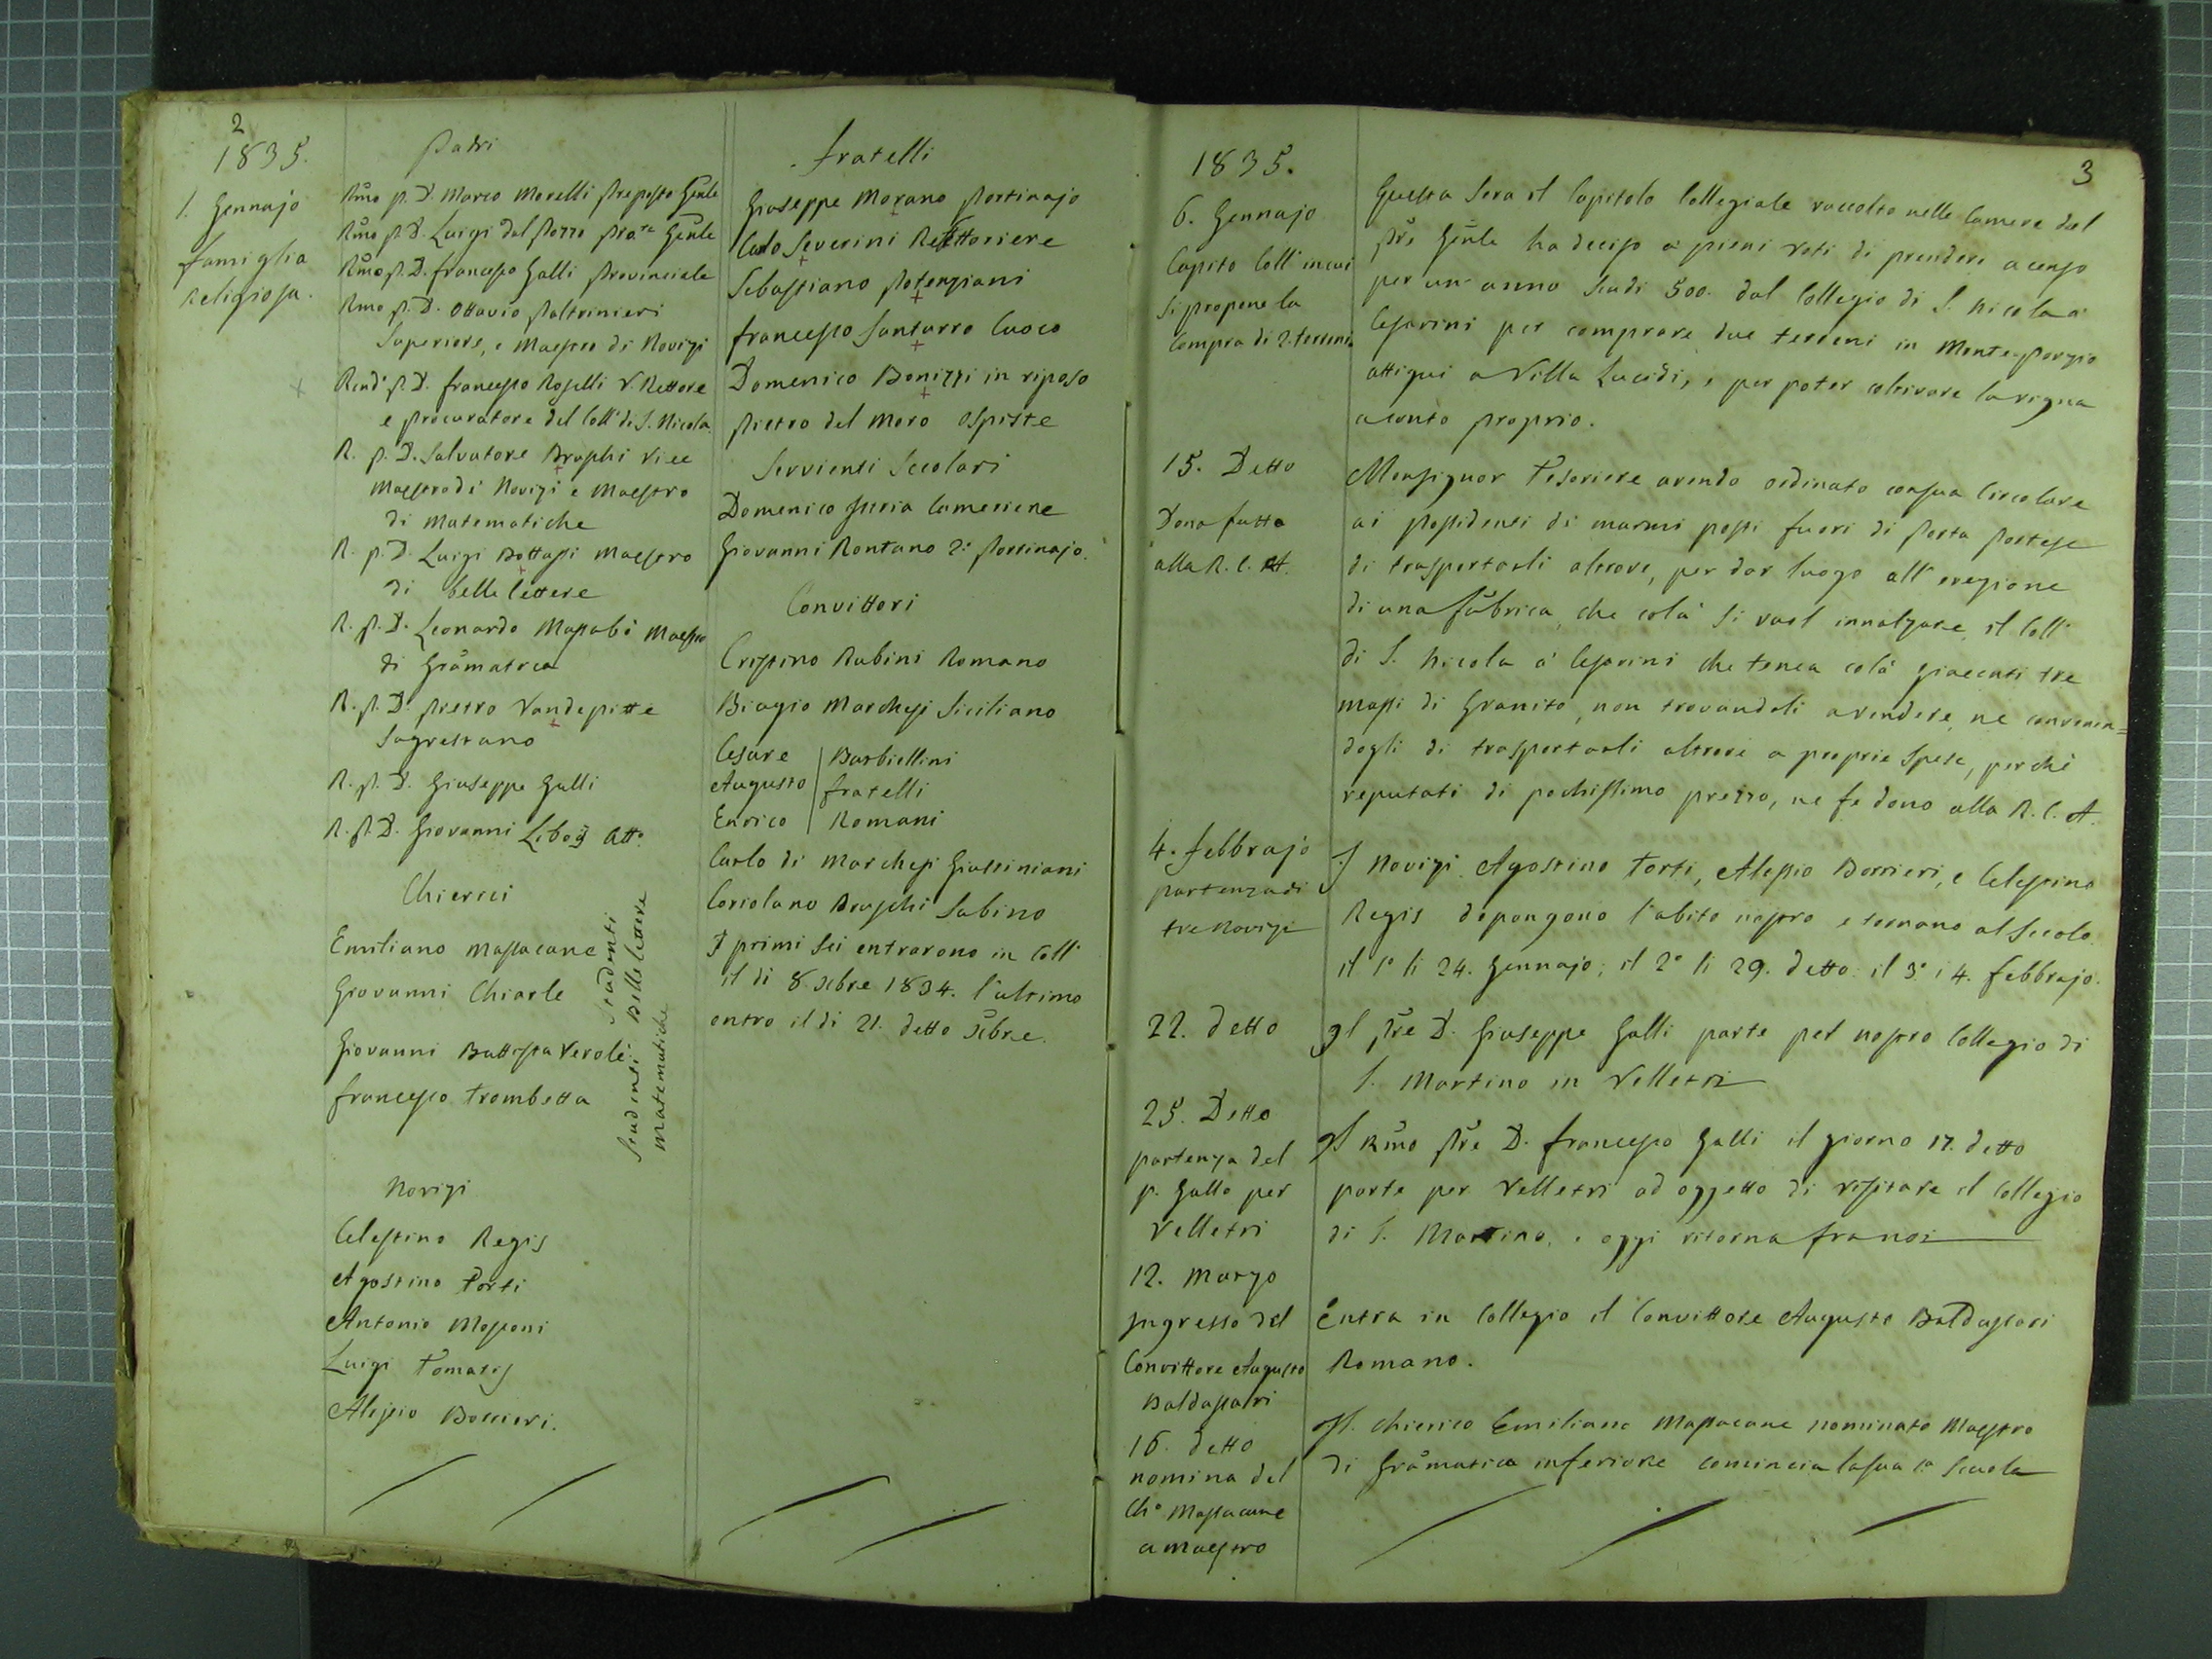 2
1835.
1. Gennajo
famiglia
Religiosa.
Padri
Rmo P. D. Marco Morelli Preposto Gēnle
Rmo P. D. Luigi dal Pozzo Prore Gēnle
Rmo P. D. francesco Galli Provinciale
Rmo P. D. Ottavio Paltrinieri
Superiore, e Maestro di Novizi
Rend. P. D. francesco Roselli V. Rettore
e Procuratore del Coll. di S. Nicola.
R. P. D. Salvatore Braschi Vice
Maestro di Novizi e Maestro
di Matematiche
R. P. D. Luigi Bottassi Maestro
di belle lettere
R. P. D. Leonardo Massabò Maestro
di Grāmatica
R. P. D. Pietro Vandepitte
Sagrestano
R. P. D. Giuseppe Galli
R. P. D. Giovanni Libois Atto.
Chierici
Emiliano Massacane
Giovanni Chiarle
Giovanni Battista Verole
francesco Trombetta
Studenti Belle lettere
Studenti
Matematiche
Novizi
Celestino Regis
Agostino Torti
Antonio Mosconi
Luigi Tomatis
Alessio Borrieri.
fratelli
Giuseppe Morano Portinajo
Carlo Severini Refettoriere
Sebastiano Potenziani
francesco Santurro Cuoco
Domenico Bonizzi in riposo
Pietro del Moro Ospiste
Servienti Secolari
Domenico Juria Cameriere
Giovanni Rontano 2° Portinajo.
Convittori
Crispino Rubini Romano
Biagio Marchesi Siciliano
Cesare | Barbiellini
Augusto | fratelli
Enrico | Romani
Carlo di Marchesi Giustiniani
Coriolano Braschi Sabino
I primi sei entrarono in Coll.
il di 8 Xbre 1834. l'ultimo
entro il di 21. detto Xbre.
3
1835.
6. Gennajo
Capito Coll. in cui
si propone la
Compra di 2. terreni
Questa sera il Capitolo Collegiale raccolto nelle Camere del
Pre Gēnle ha deciso a pieni voti di prendere a censo
per un anno Scudi 500. dal Collegio di S. Nicola a'
Cesarini per comprare due terreni in Monte-porzio
attigui a Villa Lucidi, e per poter coltivare la vigna
a conto proprio.
15. Detto
Dono fatto
alla R. C. A.
Monsignor Tesoriere avendo ordinato con sua Circolare
ai possidenti di marmi posti fuori di Porta Portese
di trasportarli altrove, per dar luogo all'erezione
di una fabrica, che colà si vuol innalzare, il Coll.
di S. Nicola a' Cesarini che tenea colà giacenti tre
massi di Granito, non trovandoli a vendere, ne convenen=
dogli di trasportarli altrove a proprie spese, perchè
reputati di pochissimo prezzo, ne fe dono alla R. C. A.
4. febbrajo
partenza di
tre Novizi
I Novizi Agostino Torti, Alessio Borrieri, e Celestino
Regis depongono l'abito nostro e tornano al secolo.
il 1° li 24. Gennajo; il 2° li 29. detto: il 3° i 4. febbrajo.
22. detto
Il Pre D. Giuseppe Galli parte pel nostro Collegio di
S. Martino in Velletri
25. Detto
partenza del
P. Gallo per
Velletri
Il Rmo Pre D. francesco Galli il giorno 17. detto
parte per Velletri ad oggetto di visitare il Collegio
di S. Martino, e oggi ritorna fra noi
12. Marzo
Ingresso del
Convittore Augusto
Baldassari
Entra in Collegio il Convittore Augusto Baldassari
Romano.
16. detto
nomina del
Ch° Massacane
a Maestro
Il Chierico Emiliano Massacane nominato Maestro
di Grāmatica inferiore comincia la sua 1a Scuola